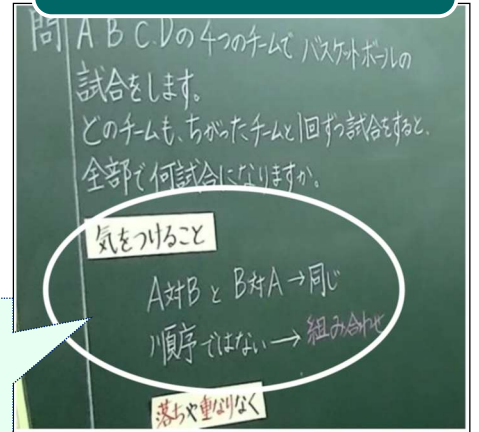 問 A B C.Dの4つのチームで バスケットボールの
試合をします。
どのチームも、ちがったチームと1回ずつ試合をすると、
全部で何試合になりますか。
気をつけること
A対BとB対A→同じ
順序ではない→組み合わせ
落ちや重なりなく